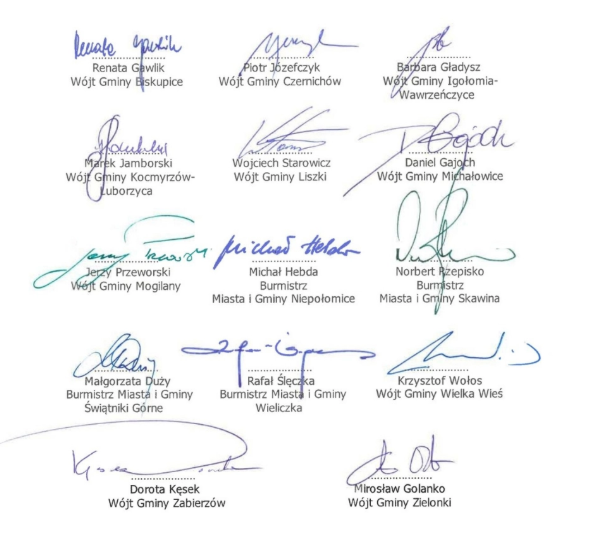 Renata Gawlik
Renata Gawlik
Wójt Gminy Biskupice
Piotr Józefczyk
Wójt Gminy Czernichów
Barbara Gładysz
Wójt Gminy Igołomia-
Wawrzeńczyce
Marek Jamborski
Wójt Gminy Kocmyrzów-
Luborzyca
Wojciech Starowicz
Wójt Gminy Liszki
D Gajoch
Daniel Gajoch
Wójt Gminy Michałowice
Jerzy Przeworski
Wójt Gminy Mogilany
Michał Hebda
Michał Hebda
Burmistrz
Miasta i Gminy Niepołomice
Norbert Rzepisko
Burmistrz
Miasta i Gminy Skawina
Małgorzata Duży
Burmistrz Miasta i Gminy
Świątniki Górne
Rafał Ślęczka
Burmistrz Miasta i Gminy
Wieliczka
Krzysztof Wołos
Wójt Gminy Wielka Wieś
Dorota Kęsek
Wójt Gminy Zabierzów
Mirosław Golanko
Wójt Gminy Zielonki